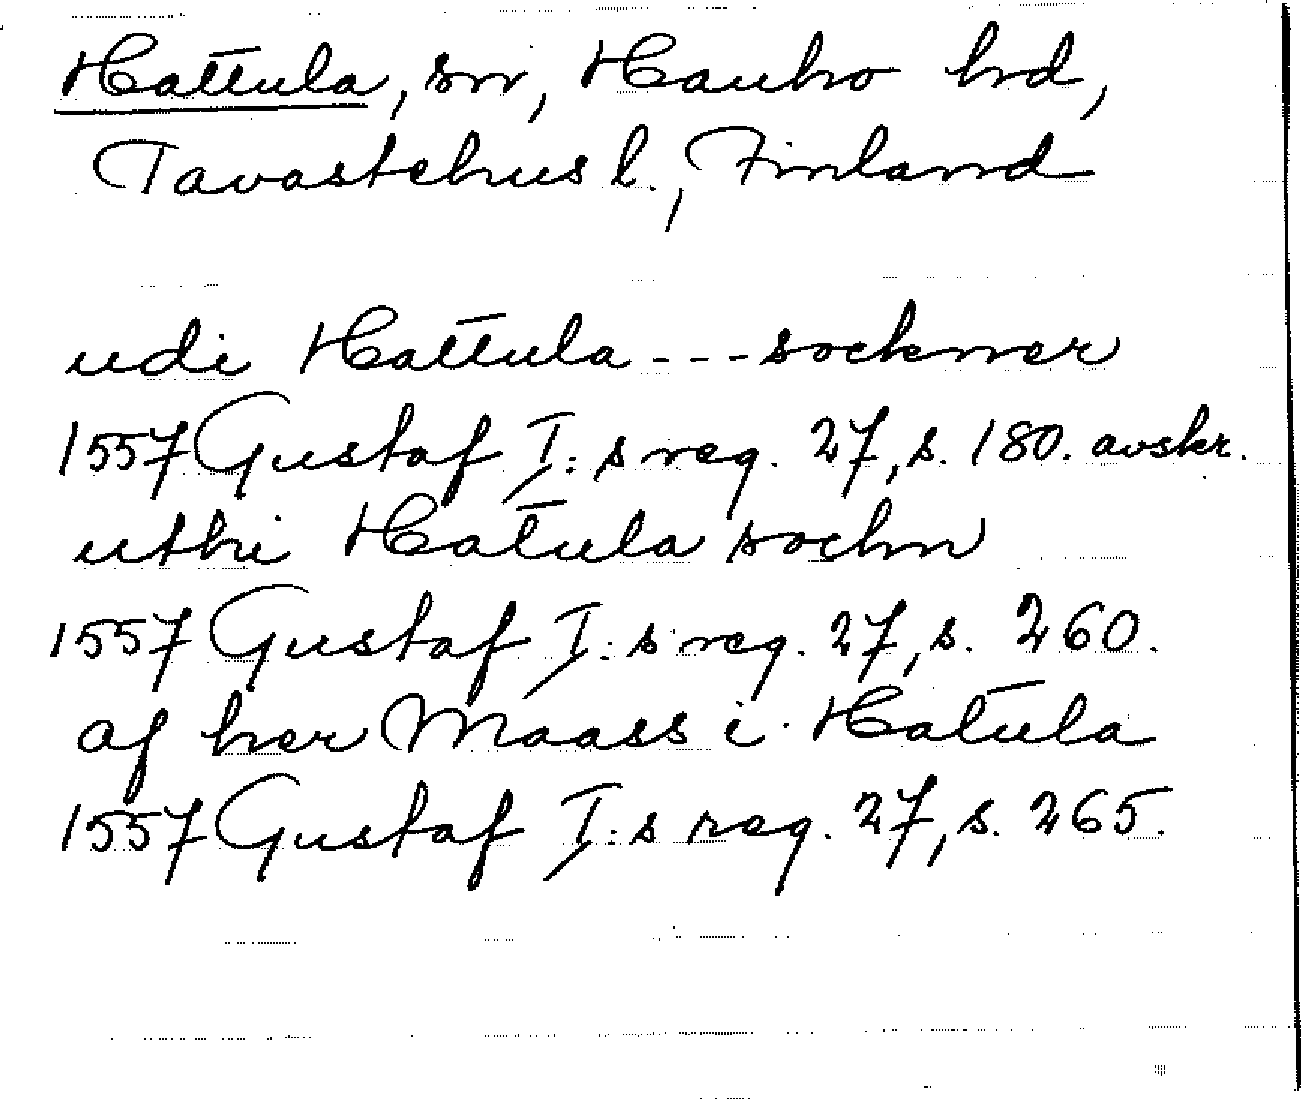 Hattula, sn, Hauho hrd,
Tavastehus l., Finland
udi Hattula - - - sockner
1557 Gustaf I:s reg. 27, s. 180. avskr.
uthi Hatula sochn
1557 Gustaf I:s reg. 27, s. 260.
af her Maass i Hatula
1557 Gustaf I:s reg. 27, s. 265.